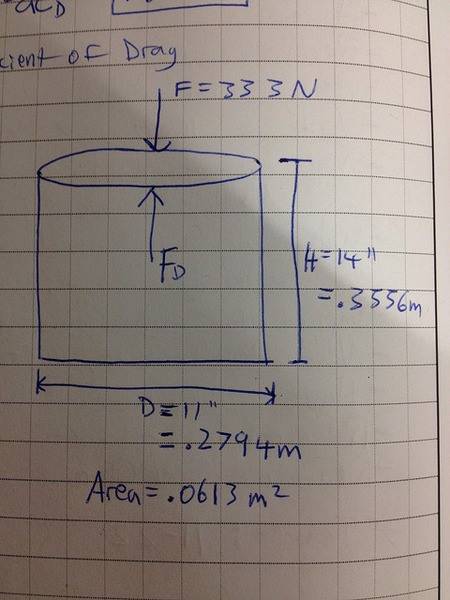 of Drag
F = 333N
F_D
H = 14"
= .3556m
D = 11"
= .2794m
Area = .0613 m²